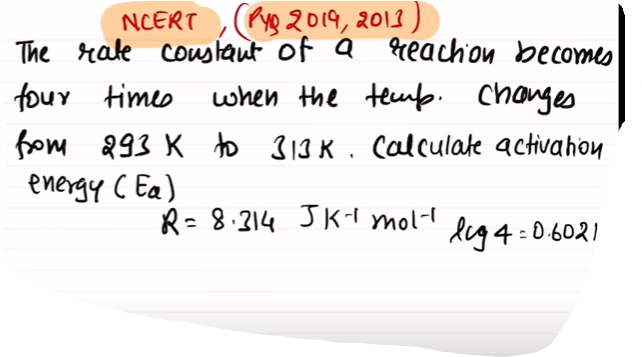 NCERT, (Pyq 2019, 2013)
The rate constant of a reaction becomes
four times when the temp. changes
from 293 K to 313 K. Calculate activation
energy (Ea)
R = 8.314 J K-1 mol-1 log 4 = 0.6021